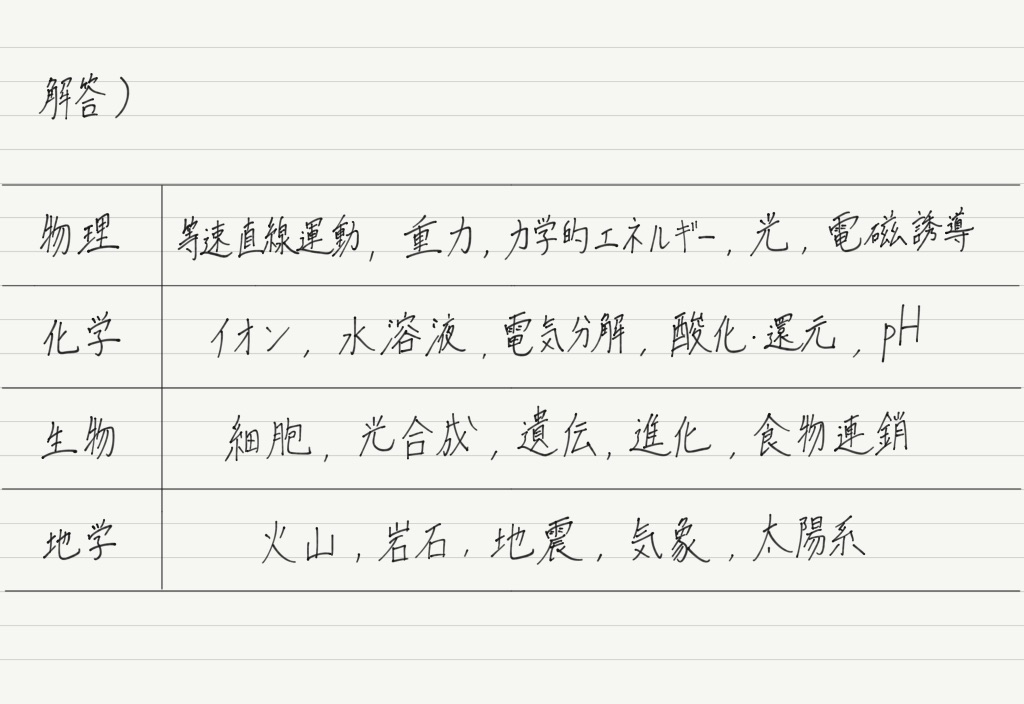 解答)
物理 等速直線運動, 重力, 力学的エネルギー, 光, 電磁誘導
化学 イオン, 水溶液, 電気分解, 酸化・還元, pH
生物 細胞, 光合成, 遺伝, 進化, 食物連鎖
地学 火山, 岩石, 地震, 気象, 太陽系